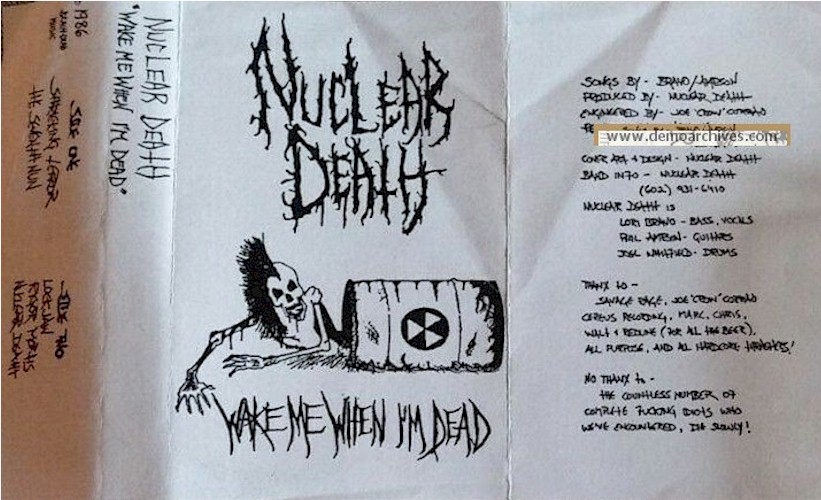 1986
DEATH-DEAD
MUSIC
SIDE ONE
SHRIEKING TERROR
THE SEVENTH NUN
SIDE TWO
LOCKJAW
RIGOR MORTIS
NUCLEAR DEATH
"WAKE ME WHEN I'M DEAD"
NUCLEAR
DEATH
WAKE ME WHEN I'M DEAD
SONGS BY - BRAVO/AMPSON
PRODUCED BY - NUCLEAR DEATH
ENGINEERED BY - JOE "CRON" CORRAO
www.demoarchives.com
COVER ART & DESIGN - NUCLEAR DEATH
BAND INFO - NUCLEAR DEATH
(602) 931-6410
NUCLEAR DEATH IS
LORI BRAVO - BASS, VOCALS
PHIL AMPSON - GUITARS
JOEL WHITFIELD - DRUMS
THANX TO -
SAVAGE RAGE, JOE "CRON" CORRAO
CEREUS RECORDING, MARC, CHRIS,
WALT & REDLINE (FOR ALL THE BEER),
ALL PURPOSE, AND ALL HARDCORE THRASHERS!
NO THANX TO -
THE COUNTLESS NUMBER OF
COMPLETE FUCKING IDIOTS WHO
WE'VE ENCOUNTERED, DIE SLOWLY!